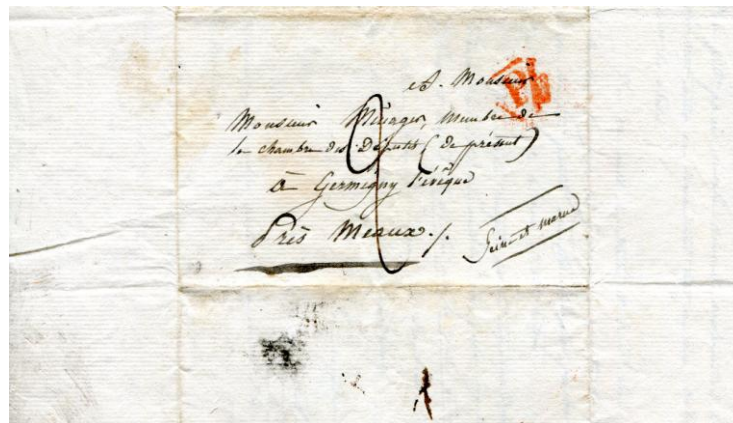 A. Monsieur
Monsieur Ménager, membre de
la chambre des Députés (de présent)
à Germigny l'évêque
Près Meaux ./.
Seine et marne